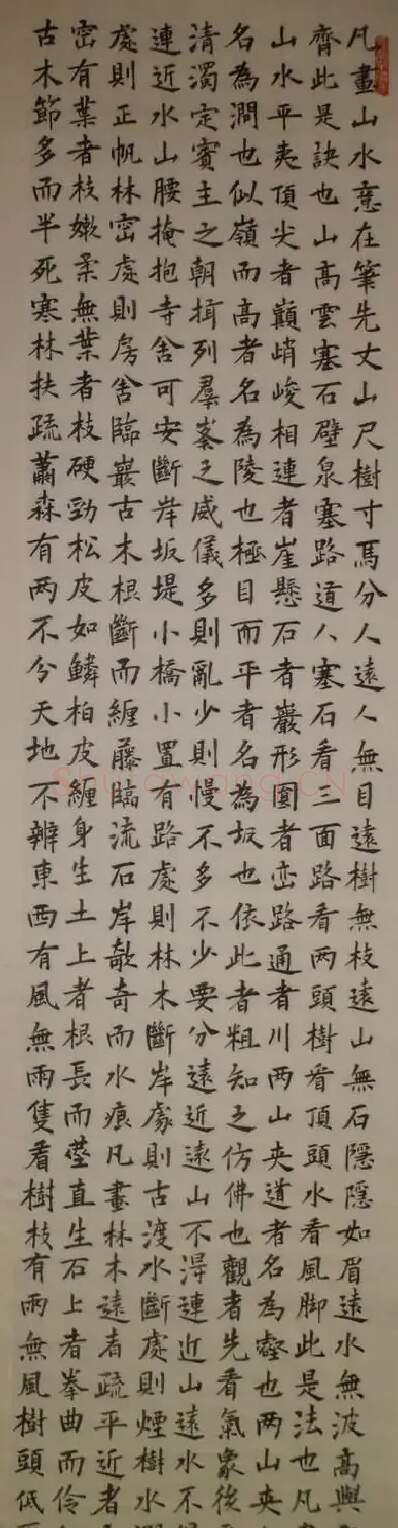 凡畫山水意在筆先丈山尺樹寸馬分人遠人無目遠樹無枝遠山無石隱隱如眉遠水無波高與
齊此是訣也山高雲塞石壁泉塞路道人塞石看三面路看兩頭樹看頂頭水看風脚此是法也凡
山水平夷頂尖者巔峭峻相連者崖懸石者巖形圓者峦路通者川兩山夾道者名為壑也兩山夾
名為澗也似嶺而高者名為陵也極目而平者名為坂也依此者粗知之仿佛也觀者先看氣象後
清濁定賓主之朝揖列羣峯之威儀多則亂少則慢不多不少要分遠近遠山不得連近山遠水不
連近水山腰掩抱寺舍可安斷岸坂堤小橋小置有路處則林木斷岸處則古渡水斷處則煙樹水
處則正帆林密處則房舍臨巖古木根斷而纏藤臨流石岸欹奇而水痕凡畫林木遠者疏平近者
密有葉者枝嫩柔無葉者枝硬勁松皮如鱗柏皮纏身生土上者根長而莖直生石上者拳曲而伶
古木節多而半死寒林扶疏蕭森有雨不分天地不辨東西有風無雨隻看樹枝有雨無風樹頭低